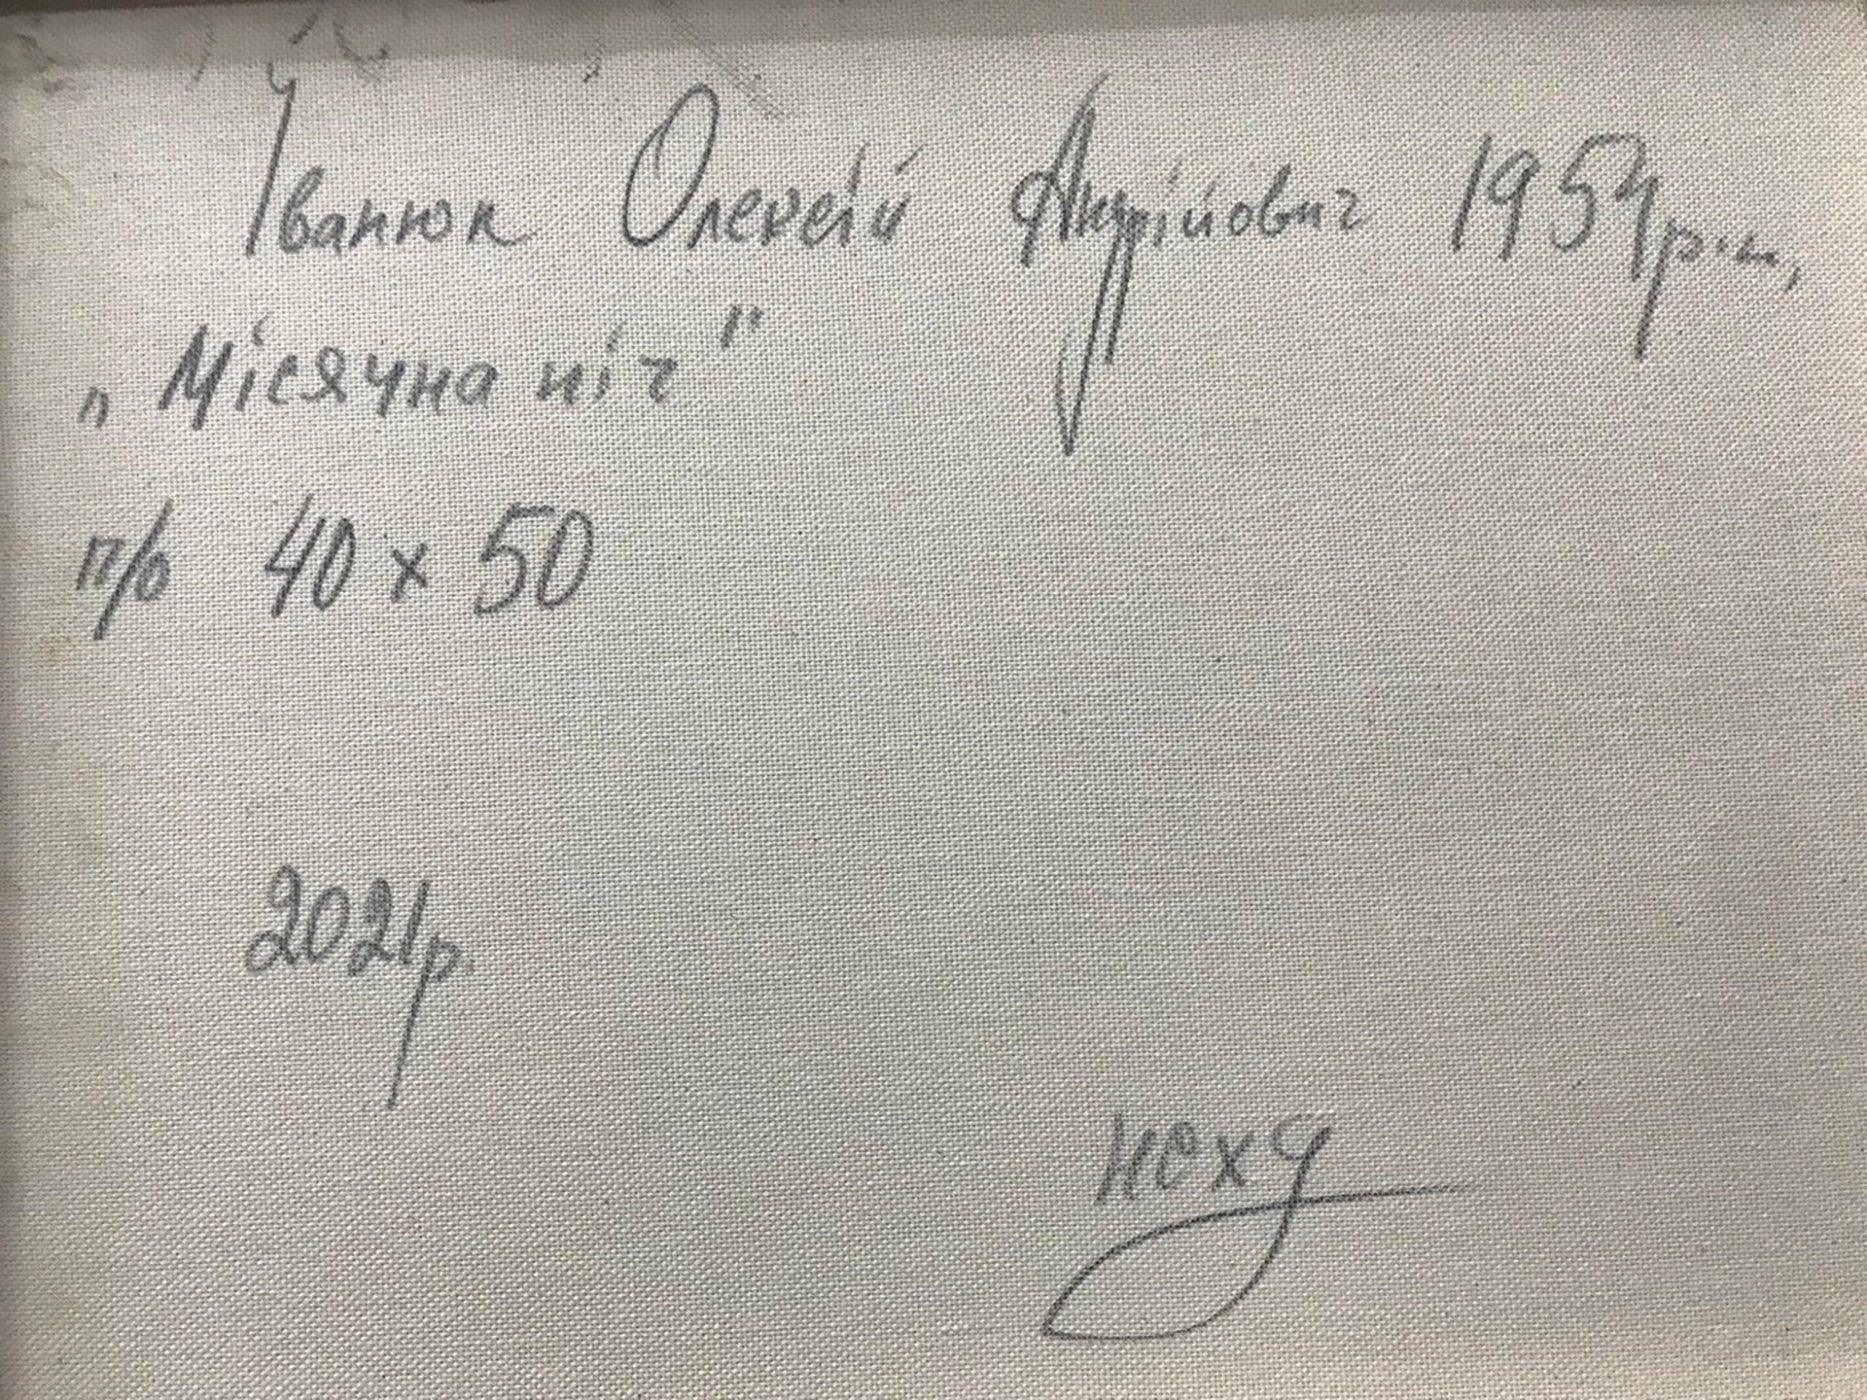 Іванюк Олексій Андрійович 1954р.н,
„Місячна ніч"
п/о 40 х 50
2021р.
НСХУ